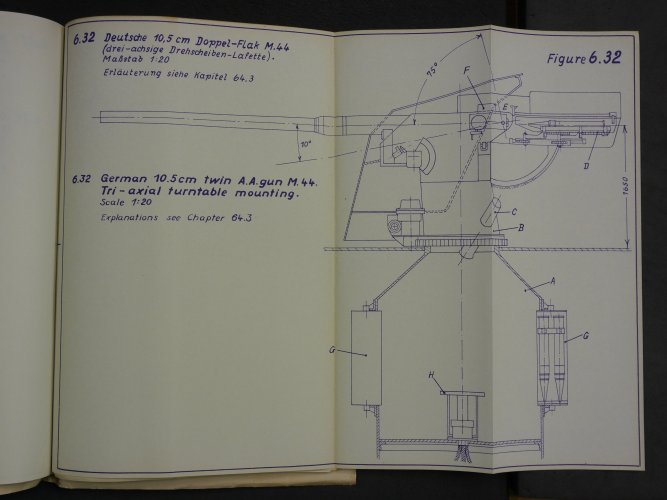 6.32 Deutsche 10,5 cm Doppel-Flak M.44
(drei-achsige Drehscheiben-Lafette).
Maßstab 1:20
Erläuterung siehe Kapitel 64.3
Figure 6.32
75°
F
E
10°
D
1650
6.32 German 10.5cm twin A.A.gun M.44.
Tri-axial turntable mounting.
Scale 1:20
Explanations see Chapter 64.3
C
B
A
G
G
H